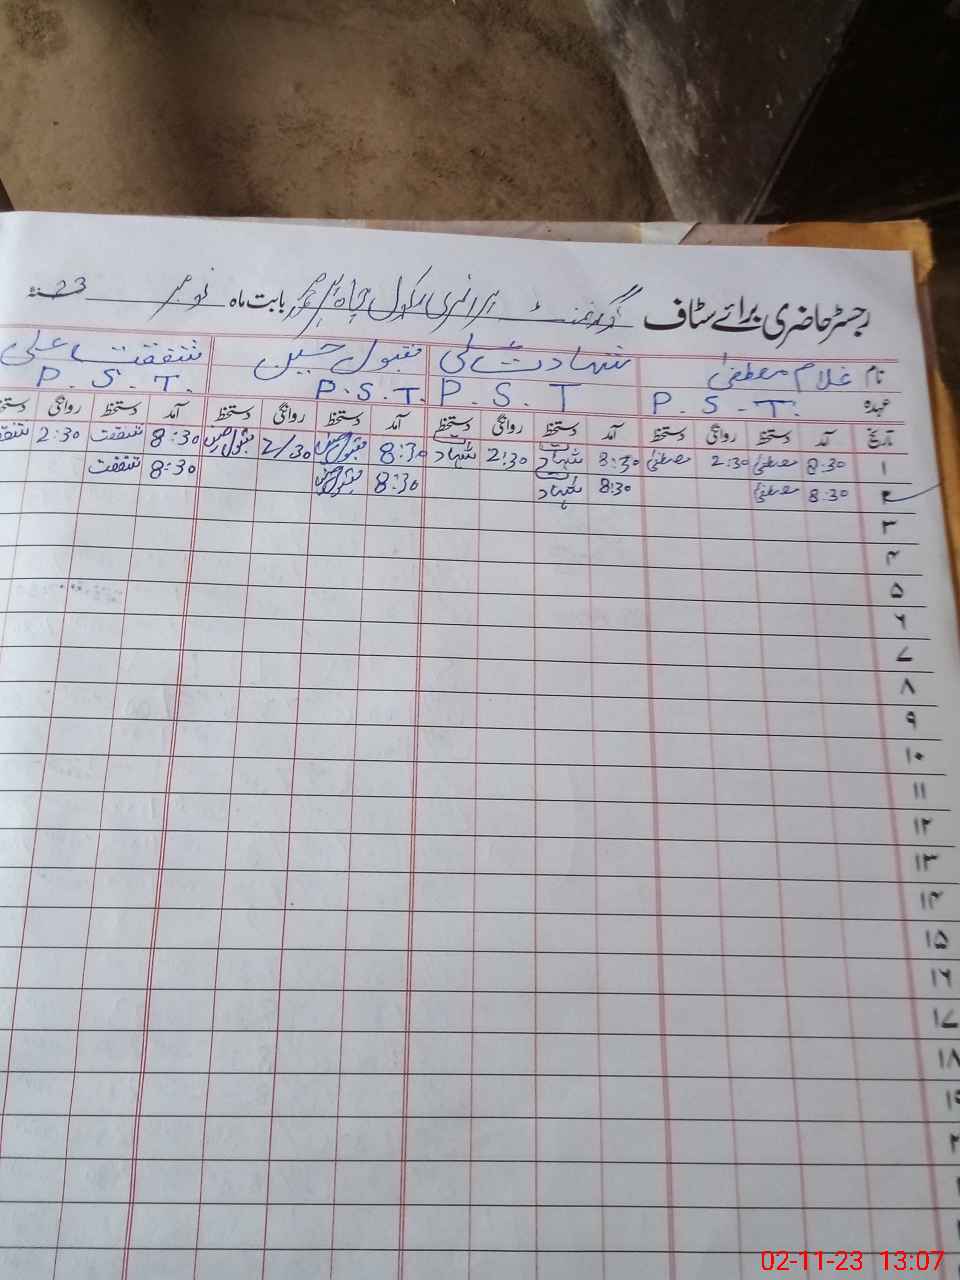 رجسٹر حاضری برائے سٹاف گورنمنٹ پرائمری سکول چاہ بابت ماہ نومبر 23ء
نام غلام مصطفیٰ شہادت علی مقبول حسین شفقت علی
عہدہ P.S.T. P.S.T P.S.T. P.S.T.
تاریخ آمد دستخط روانگی دستخط آمد دستخط روانگی دستخط آمد دستخط روانگی دستخط آمد دستخط روانگی دستخط
۱ 8:30 مصطفیٰ 2:30 مصطفیٰ 8:30 شہادت 2:30 شہادت 8:30 مقبول حسین 2/30 مقبول حسین 8:30 شفقت 2:30
۲ 8:30 مصطفیٰ 8:30 شہادت 8:30 مقبول حسین 8:30 شفقت
۳
۴
۵
۶
۷
۸
۹
۱۰
۱۱
۱۲
۱۳
۱۴
۱۵
۱۶
۱۷
۱۸
02-11-23 13:07